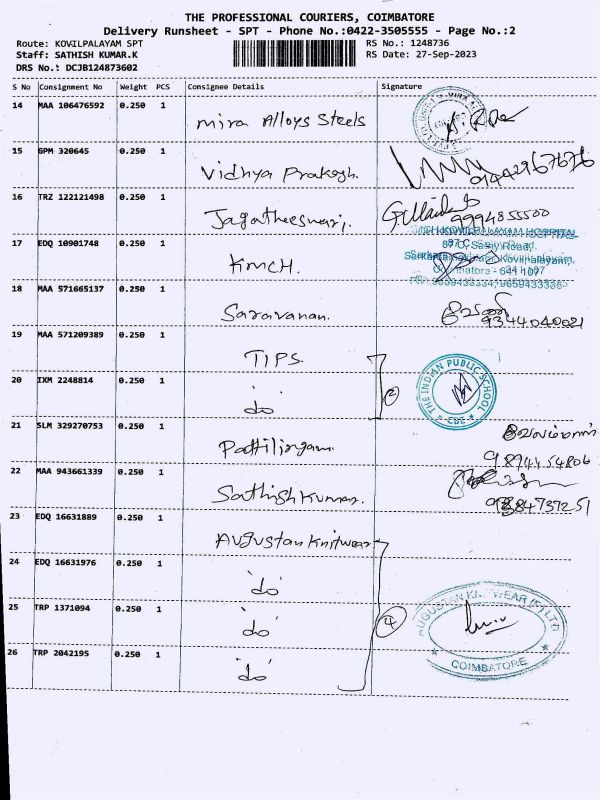 THE PROFESSIONAL COURIERS, COIMBATORE
Delivery Runsheet - SPT - Phone No.:0422-3505555 - Page No.:2
Route: KOVILPALAYAM SPT
RS No.: 1248736
Staff: SATHISH KUMAR.K
RS Date: 27-Sep-2023
DRS No.: DCJB124873602
S No Consignment No Weight PCS Consignee Details Signature
14 MAA 106476592 0.250 1 Mira Alloys Steels
15 GPM 320645 0.250 1 Vidhya Prakash.
16 TRZ 122121498 0.250 1 Jagatheeswari,
9994855500
17 EDQ 10901748 0.250 1 KMCH.
87 C, Sathy Road,
Kovilpalayam,
Coimbatore - 641 107
18 MAA 571665137 0.250 1 Saravanan.
9344040021
19 MAA 571209389 0.250 1 TIPS.
20 IXM 2248814 0.250 1 'do' 2
THE INDIAN PUBLIC SCHOOL
CBE
21 SLM 329270753 0.250 1
9894454806
22 MAA 943661339 0.250 1 Sathish Kumar.
23 EDQ 16631889 0.250 1 Augustan Knitwear
24 EDQ 16631976 0.250 1 'do'
25 TRP 1371094 0.250 1 'do' 4
AUGUSTAN KNITWEAR (P) LTD
COIMBATORE
26 TRP 2042195 0.250 1 'do'